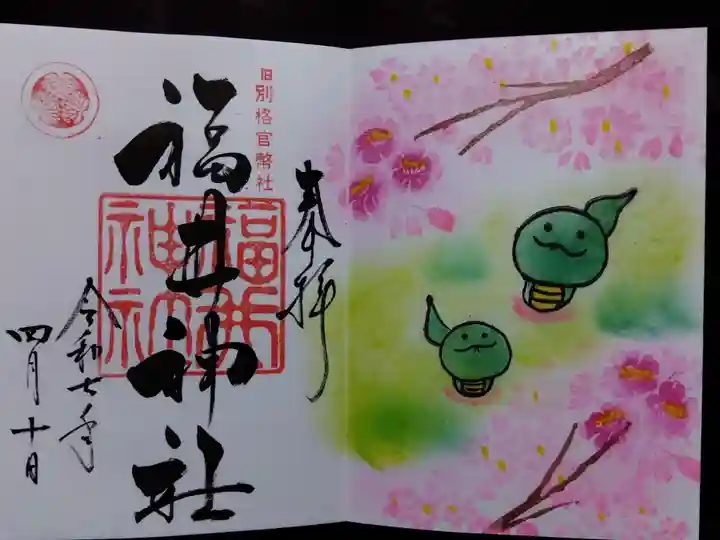 旧別格官幣社
奉拝
福井神社
福井
神社
令和七年
四月十日